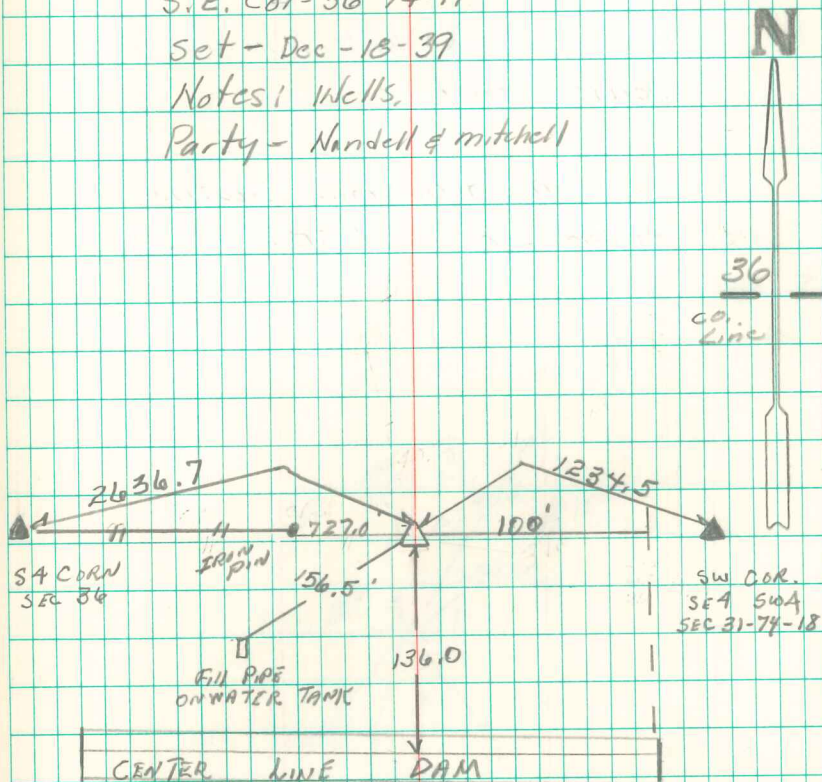 S.E. Cor-36-74-
Set - Dec-18-39
Notes: Wells,
Party - Nandell & mitchell
N
36
CO.
Line
2636.7
1234.5
727.0'
100'
S4 CORN
SEC 36
IRON
PIN
156.5'
SW COR.
SE4 SW4
SEC 31-74-18
136.0
Fill PIPE
ON WATER TANK
CENTER LINE DAM